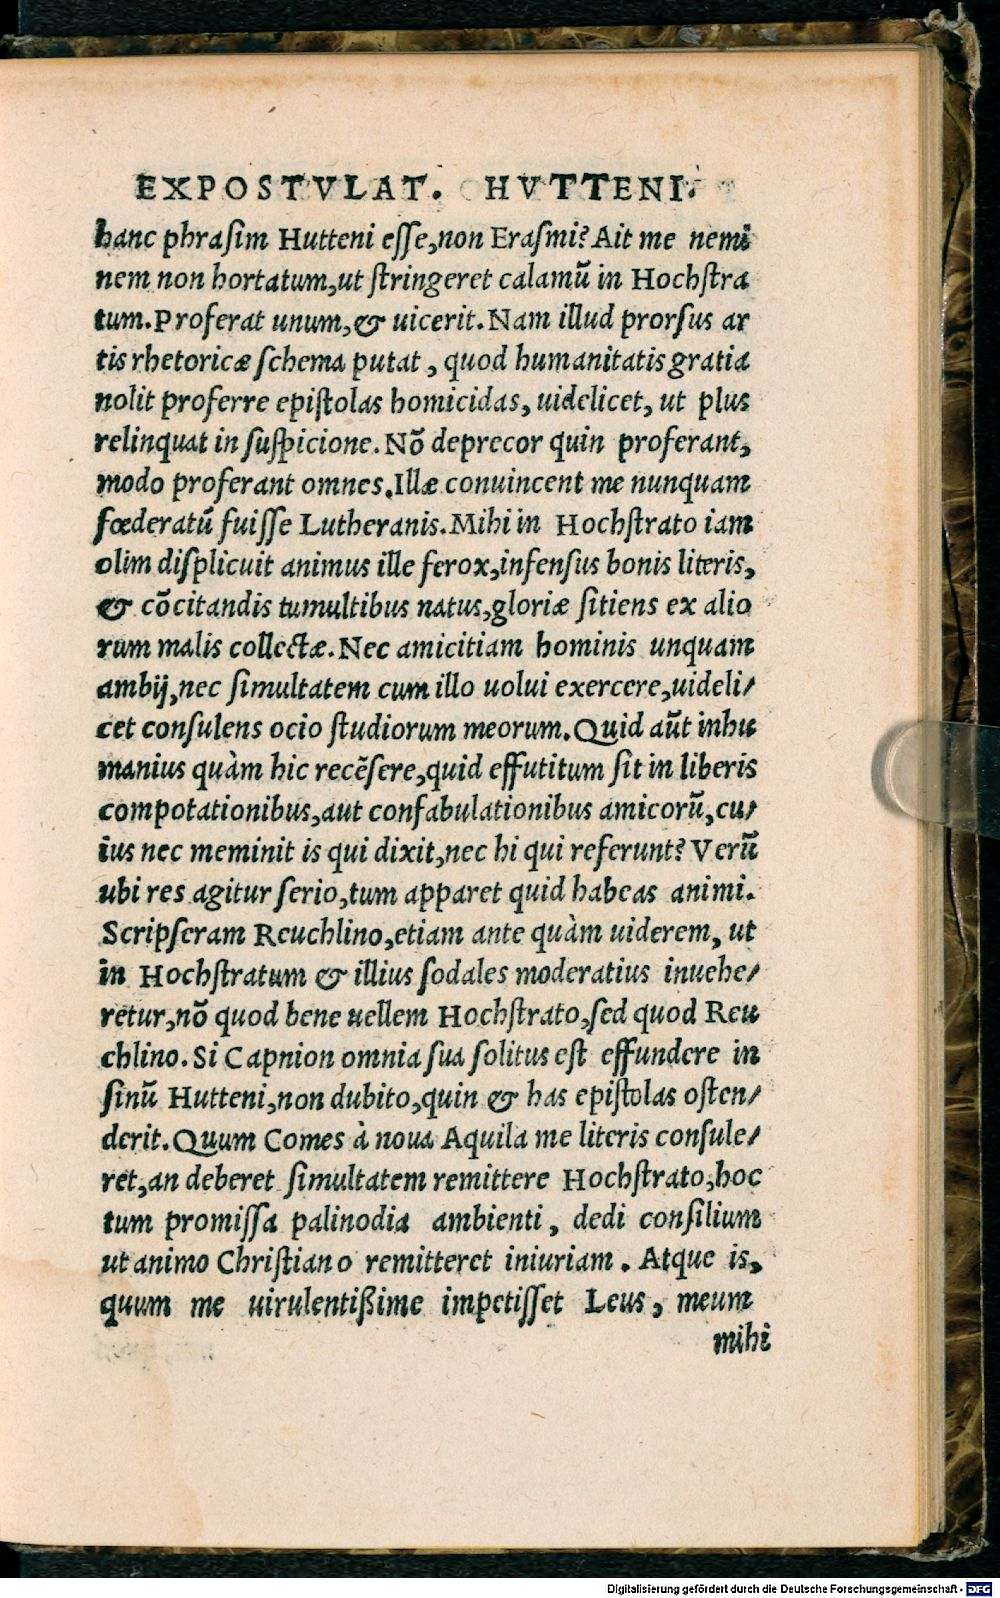 EXPOSTVLAT. HVTTENI.
hanc phrasim Hutteni esse, non Erasmi? Ait me nemi
nem non hortatum, ut stringeret calamū in Hochstra
tum. Proferat unum, & uicerit. Nam illud prorsus ar
tis rhetoricæ schema putat, quod humanitatis gratia
nolit proferre epistolas homicidas, uidelicet, ut plus
relinquat in suspicione. Nō deprecor quin proferant,
modo proferant omnes. Illæ conuincent me nunquam
fœderatū fuisse Lutheranis. Mihi in Hochstrato iam
olim displicuit animus ille ferox, infensus bonis literis,
& cōcitandis tumultibus natus, gloriæ sitiens ex alio
rum malis collectæ. Nec amicitiam hominis unquam
ambij, nec simultatem cum illo uolui exercere, uideli/
cet consulens ocio studiorum meorum. Quid aūt inhu
manius quàm hic recēsere, quid effutitum sit in liberis
compotationibus, aut confabulationibus amicorū, cu/
ius nec meminit is qui dixit, nec hi qui referunt? Verū
ubi res agitur serio, tum apparet quid habeas animi.
Scripseram Reuchlino, etiam ante quàm uiderem, ut
in Hochstratum & illius sodales moderatius inuehe/
retur, nō quod bene uellem Hochstrato, sed quod Reu
chlino. Si Capnion omnia sua solitus est effundere in
sinū Hutteni, non dubito, quin & has epistolas osten/
derit. Quum Comes à noua Aquila me literis consule/
ret, an deberet simultatem remittere Hochstrato, hoc
tum promissa palinodia ambienti, dedi consilium
ut animo Christiano remitteret iniuriam. Atque is,
quum me uirulentißime impetisset Leus, meum
mihi
Digitalisierung gefördert durch die Deutsche Forschungsgemeinschaft - DFG